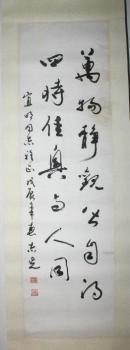 萬物靜觀皆自得
四時佳興與人同
宜明同志雅正戊辰年夏志光